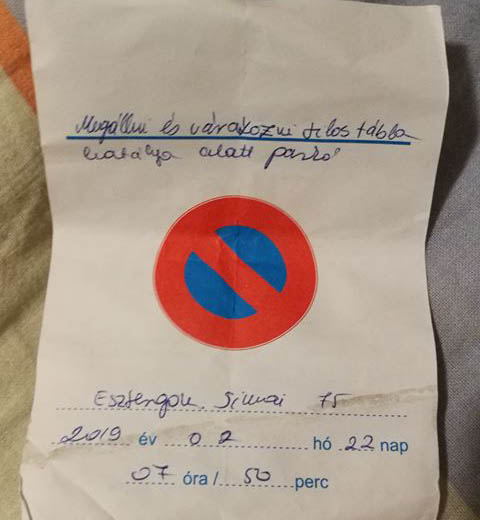 Megállni és várakozni tilos tábla
hatálya alatt parkó
Esztergom, Simai 75
2019 év 02 hó 22 nap
07 óra / 50 perc